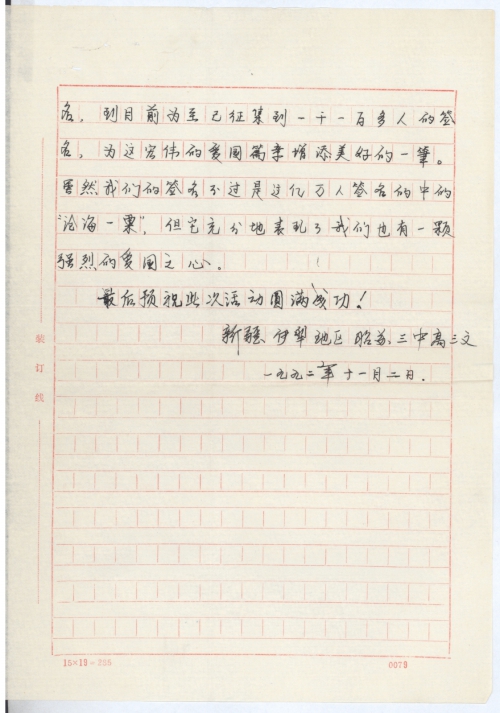 名，到目前为至已征集到一千一百多人的签
名，为这宏伟的爱国篇章增添美好的一筆。
虽然我们的签名不过是这亿万人签名的中的
"沧海一粟"，但它充分地表现了我们也有一颗
强烈的爱国之心。
最后预祝此次活动圆满成功！
新疆伊犁地区昭苏三中高三文
一九九二年十一月二日.
装订线
15×19=285
0079